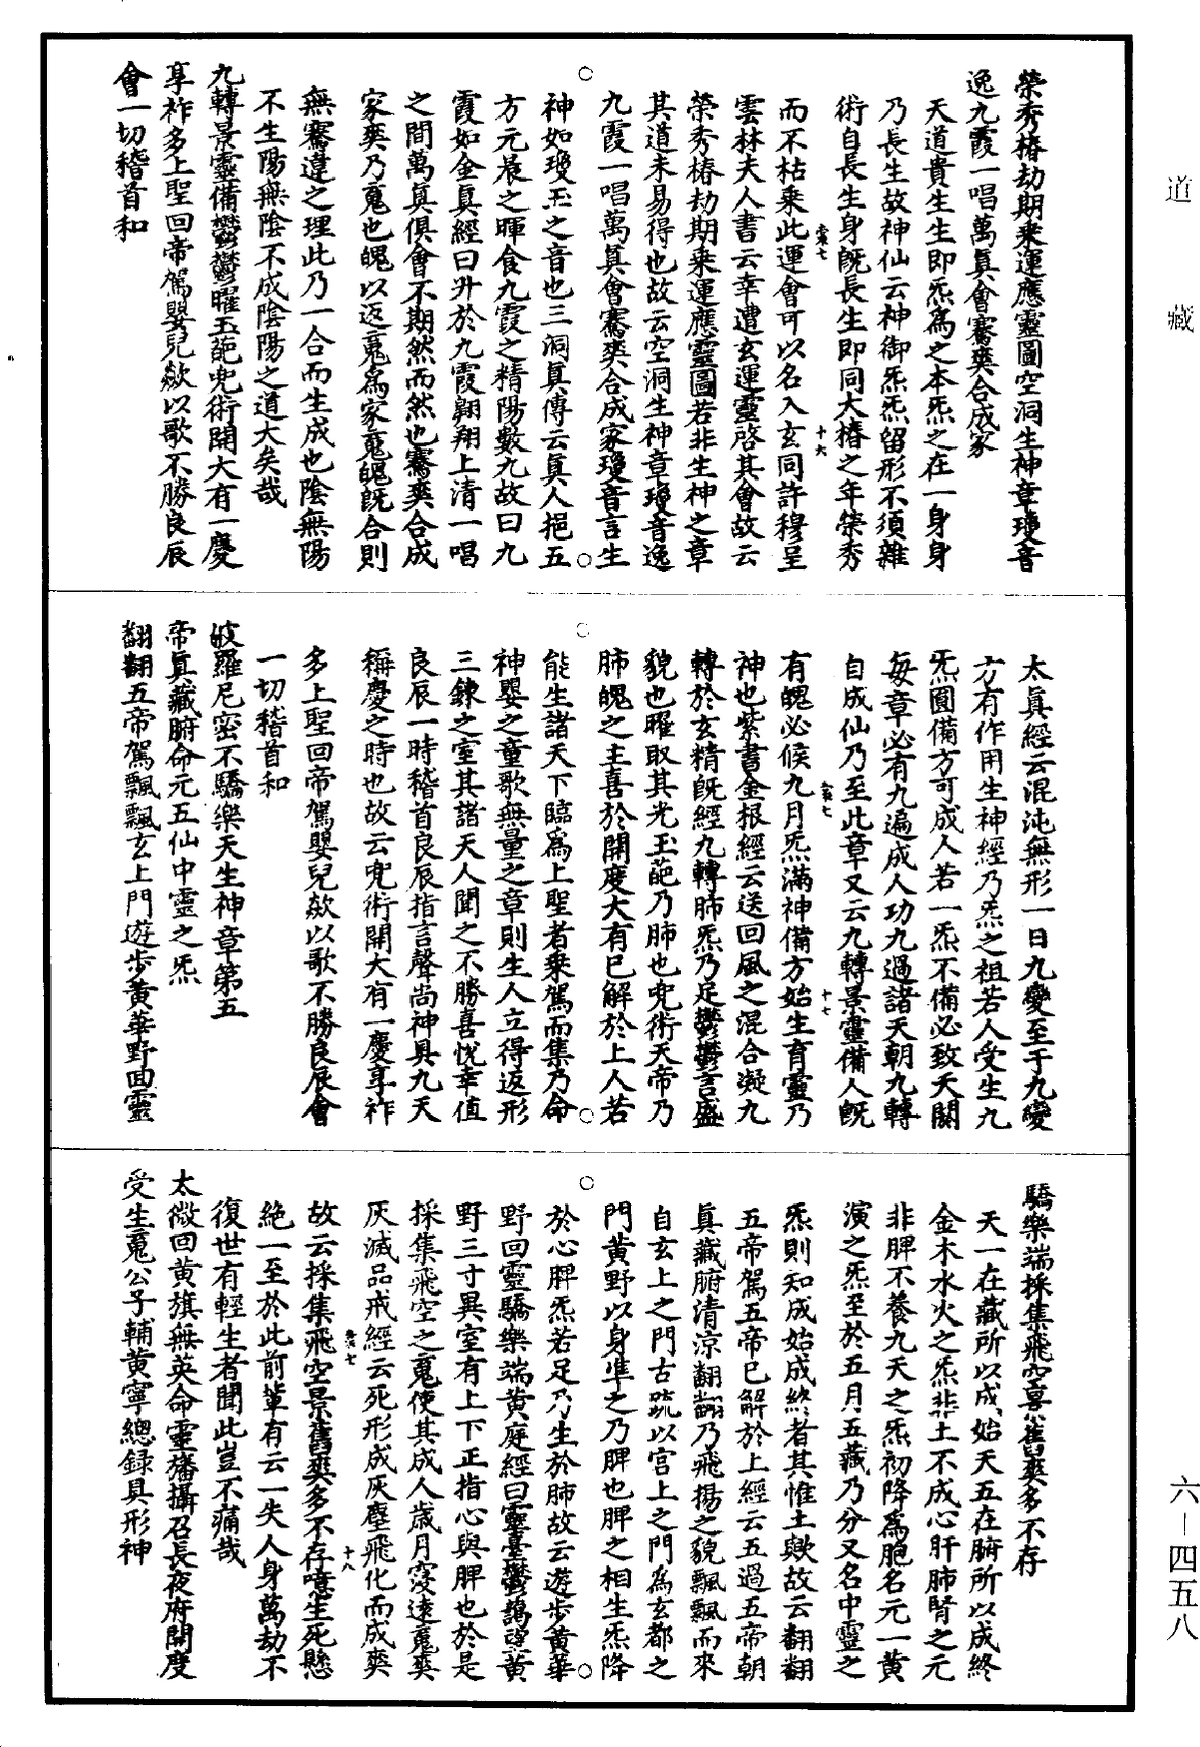 道藏
榮秀椿劫期乗運應靈圖空洞生神章瓊音
逸九霞一唱萬真會騫爽合成家
天道貴生生即炁為之本炁之在一身身
乃長生故神仙云神御炁炁留形不須雜
術自長生身既長生即同大椿之年榮秀
而不枯乗此運會可以名入玄同許穆呈
雲林夫人書云幸遭玄運靈啓其會故云
榮秀椿劫期乗運應靈圖若非生神之章
其道未易得也故云空洞生神章瓊音逸
九霞一唱萬真會騫爽合成家瓊音言生
神如瓊玉之音也三洞真傳云真人挹五
方元晨之暉食九霞之精陽數九故曰九
霞如金真經曰升於九霞翺翔上清一唱
之間萬真俱會不期然而然也騫爽合成
家爽乃䰟也魄以返䰟為家䰟魄既合則
無騫違之理此乃一合而生成也陰無陽
不生陽無陰不成陰陽之道大矣哉
九轉景靈備鬱鬱曜玉葩兜術開大有一慶
享祚多上聖回帝駕嬰兒欻以歌不勝良辰
會一切稽首和
太真經云混沌無形一日九變至于九變
方有作用生神經乃炁之祖若人受生九
炁圓備方可成人若一炁不備必致天關
每章必有九遍成人功九過諸天朝九轉
自成仙乃至此章又云九轉景靈備人既
有魄必候九月炁滿神備方始生育靈乃
神也紫書金根經云送回風之混合凝九
轉於玄精既經九轉肺炁乃足鬱鬱言盛
貌也曜取其光玉葩乃肺也兜術天帝乃
肺魄之主喜於開度大有已解於上人若
能生諸天下臨為上聖者乗駕而集乃命
神嬰之童歌無量之章則生人立得返形
三錬之室其諸天人聞之不勝喜悅幸值
良辰一時稽首良辰指言聲尚神具九天
稱慶之時也故云兜術開大有一慶享祚
多上聖回帝駕嬰兒欻以歌不勝良辰會
一切稽首和
波羅尼密不驕樂天生神章第五
帝真藏腑命元五仙中靈之炁
翻翻五帝駕飄飄玄上門遊步黃華野回靈
驕樂端採集飛空景舊爽多不存
天一在藏所以成始天五在腑所以成終
金木水火之炁非土不成心肝肺腎之元
非脾不養九天之炁初降為胞名元一黃
演之炁至於五月五藏乃分又名中靈之
炁則知成始成終者其惟土歟故云翻翻
五帝駕五帝已解於上經云五過五帝朝
真藏腑清涼翻翻乃飛揚之貌飄飄而來
自玄上之門古䟽以宮上之門為玄都之
門黃野以身凖之乃脾也脾之相生炁降
於心脾炁若足乃生於肺故云遊步黃華
野回靈驕樂端黃庭經曰靈臺鬱藹望黃
野三寸異室有上下正指心與脾也於是
採集飛空之䰟使其成人歳月寖遠䰟爽
灰滅品戒經云死形成灰塵飛化而成爽
故云採集飛空景舊爽多不存噫生死懸
絶一至於此前輩有云一失人身萬劫不
復世有輕生者聞此豈不痛哉
太微回黃旗無英命靈旛攝召長夜府開度
受生䰟公子輔黃寧總録具形神
六－四五八